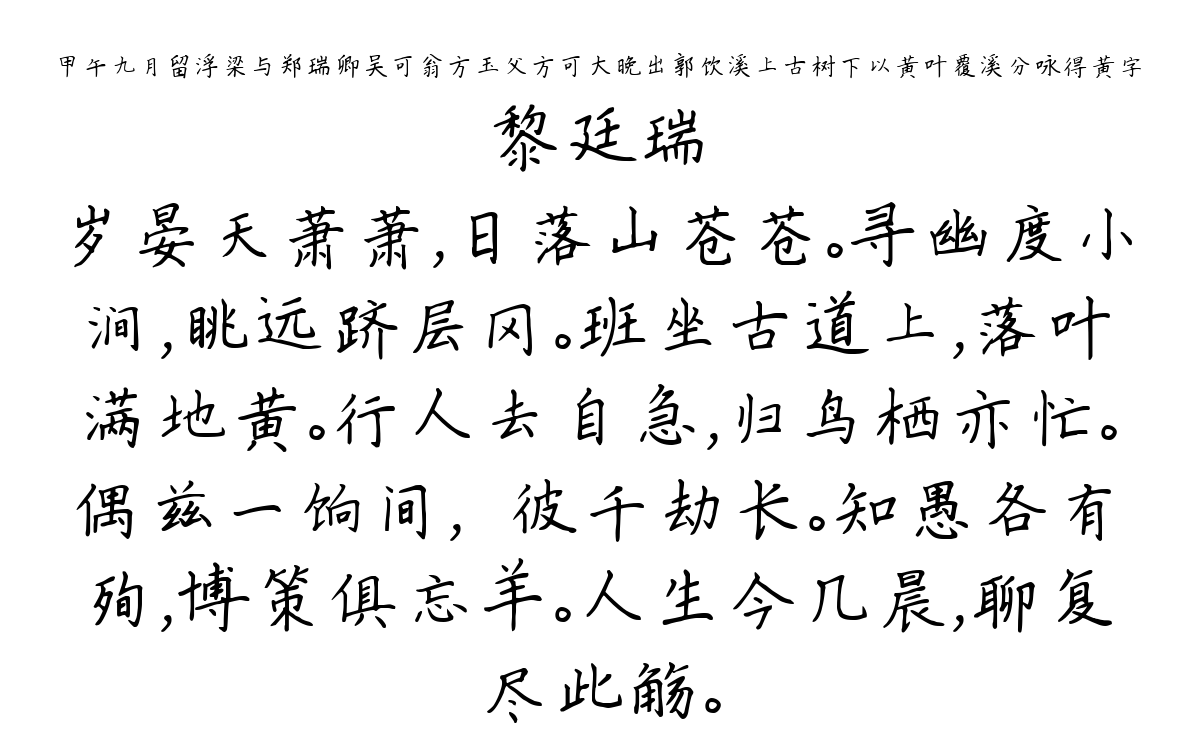 甲午九月留浮梁与郑瑞卿吴可翁方玉父方可大晚出郭饮溪上古树下以黄叶覆溪分咏得黄字
黎廷瑞
岁晏天萧萧,日落山苍苍。寻幽度小
涧,眺远跻层冈。班坐古道上,落叶
满地黄。行人去自急,归鸟栖亦忙。
偶兹一饷间，彼千劫长。知愚各有
殉,博策俱忘羊。人生今几晨,聊复
尽此觞。